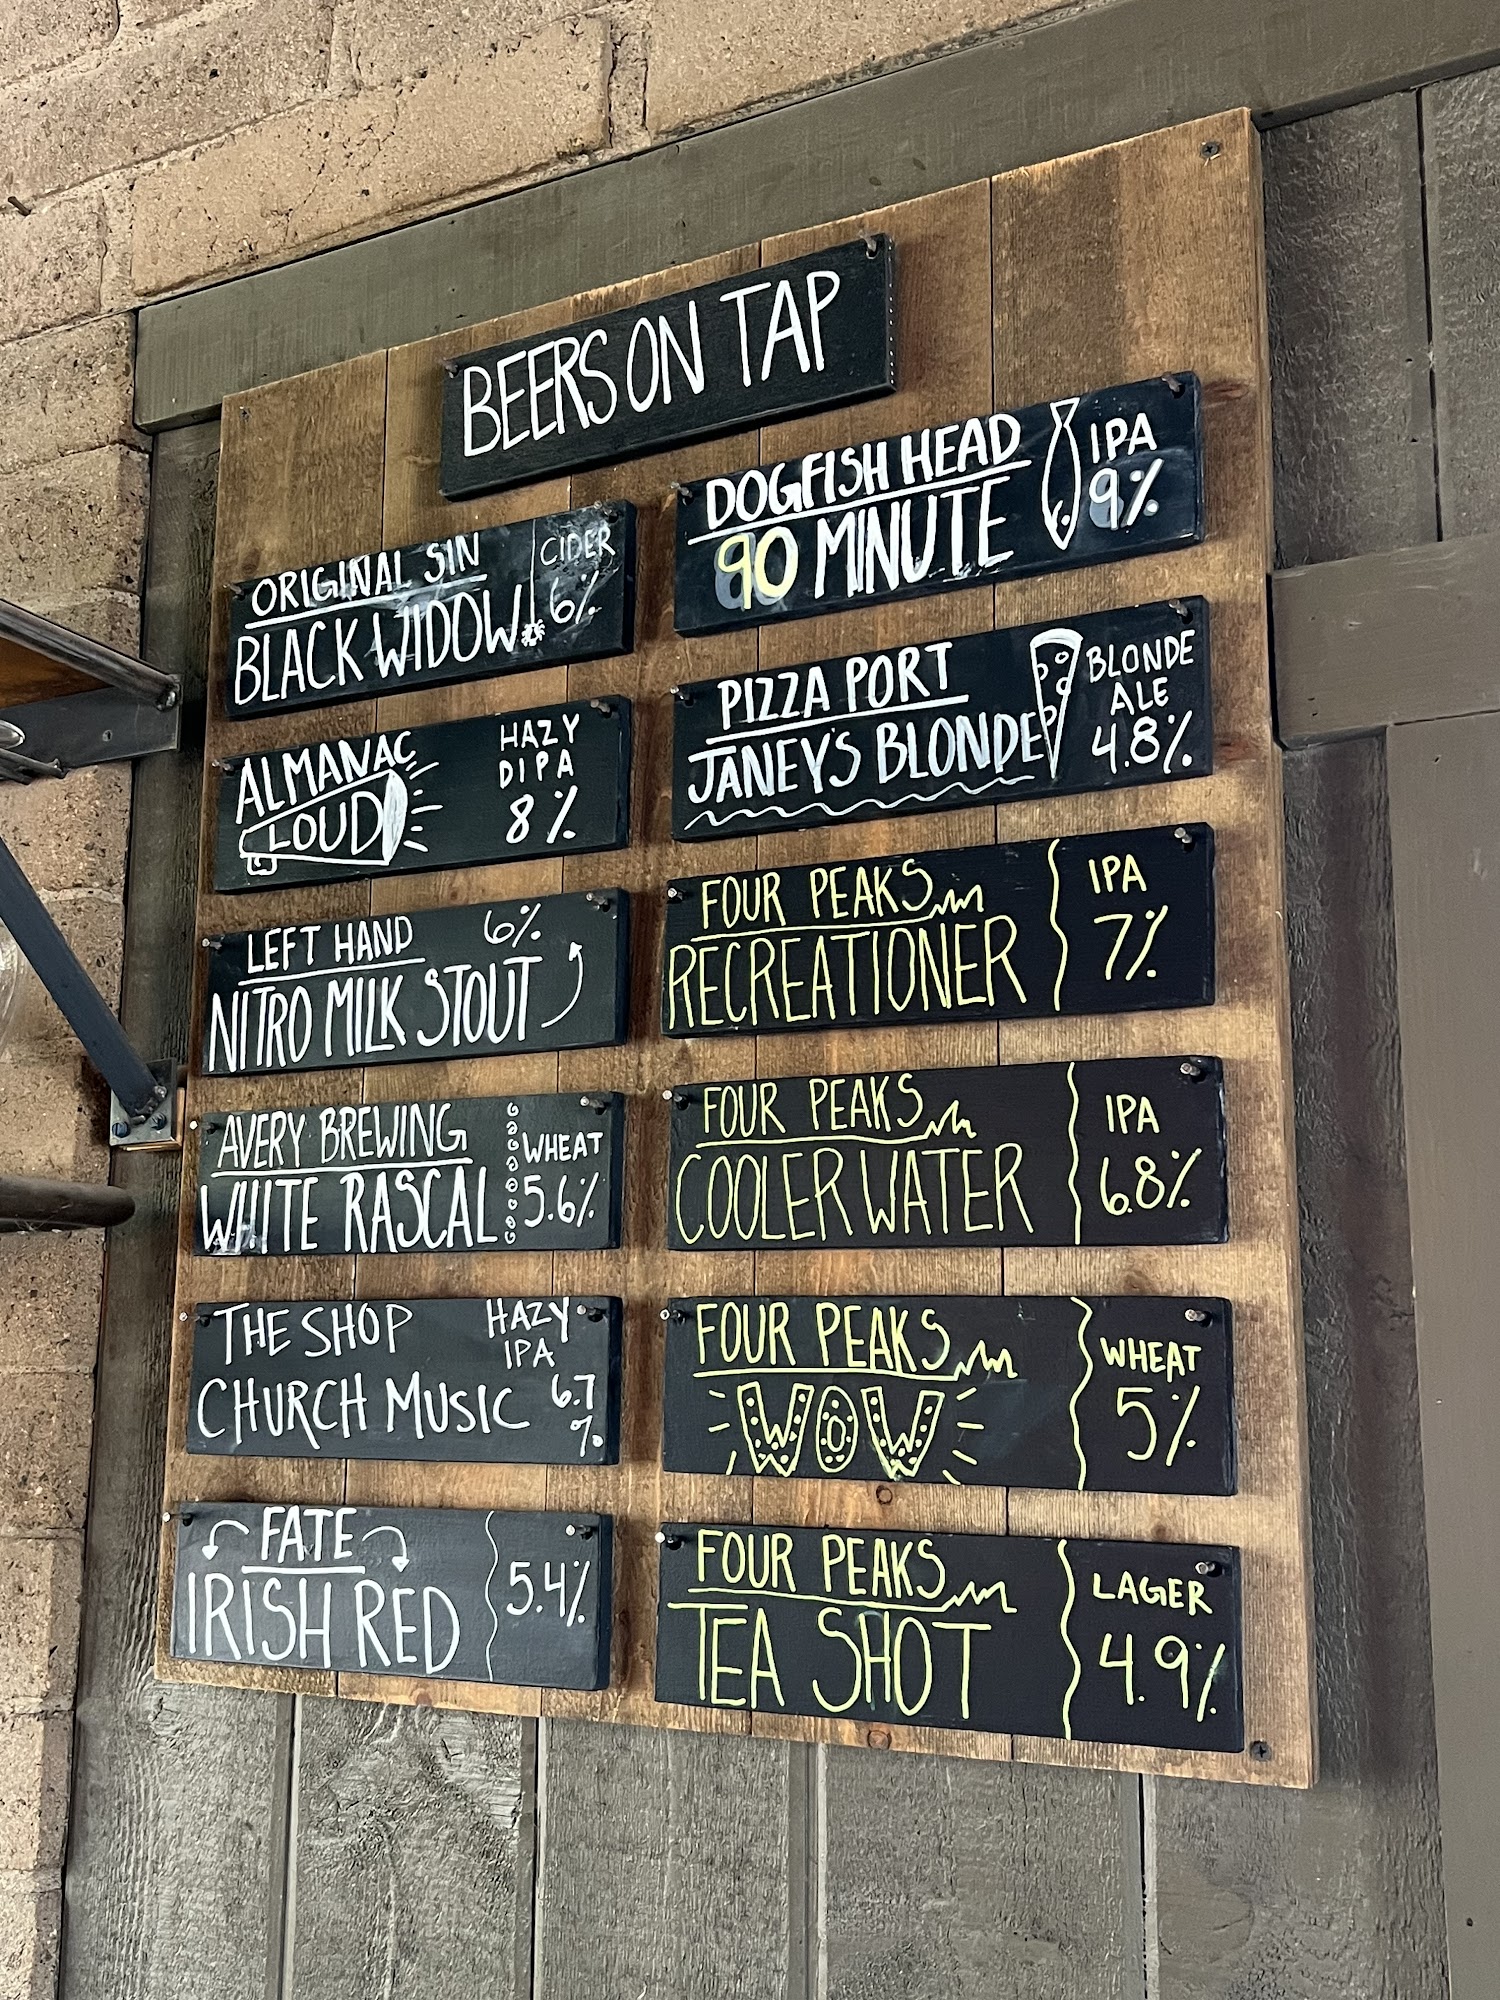 BEERS ON TAP
ORIGINAL SIN
BLACK WIDOW
CIDER
6%
ALMANAC
LOUD
HAZY
DIPA
8%
LEFT HAND
6%
NITRO MILK STOUT
AVERY BREWING
WHITE RASCAL
WHEAT
5.6%
THE SHOP
CHURCH MUSIC
HAZY
IPA
6.7
%
FATE
IRISH RED
5.4%
DOGFISH HEAD
90 MINUTE
IPA
9%
PIZZA PORT
JANEY'S BLONDE
BLONDE
ALE
4.8%
FOUR PEAKS
RECREATIONER
IPA
7%
FOUR PEAKS
COOLER WATER
IPA
6.8%
FOUR PEAKS
WOW
WHEAT
5%
FOUR PEAKS
TEA SHOT
LAGER
4.9%